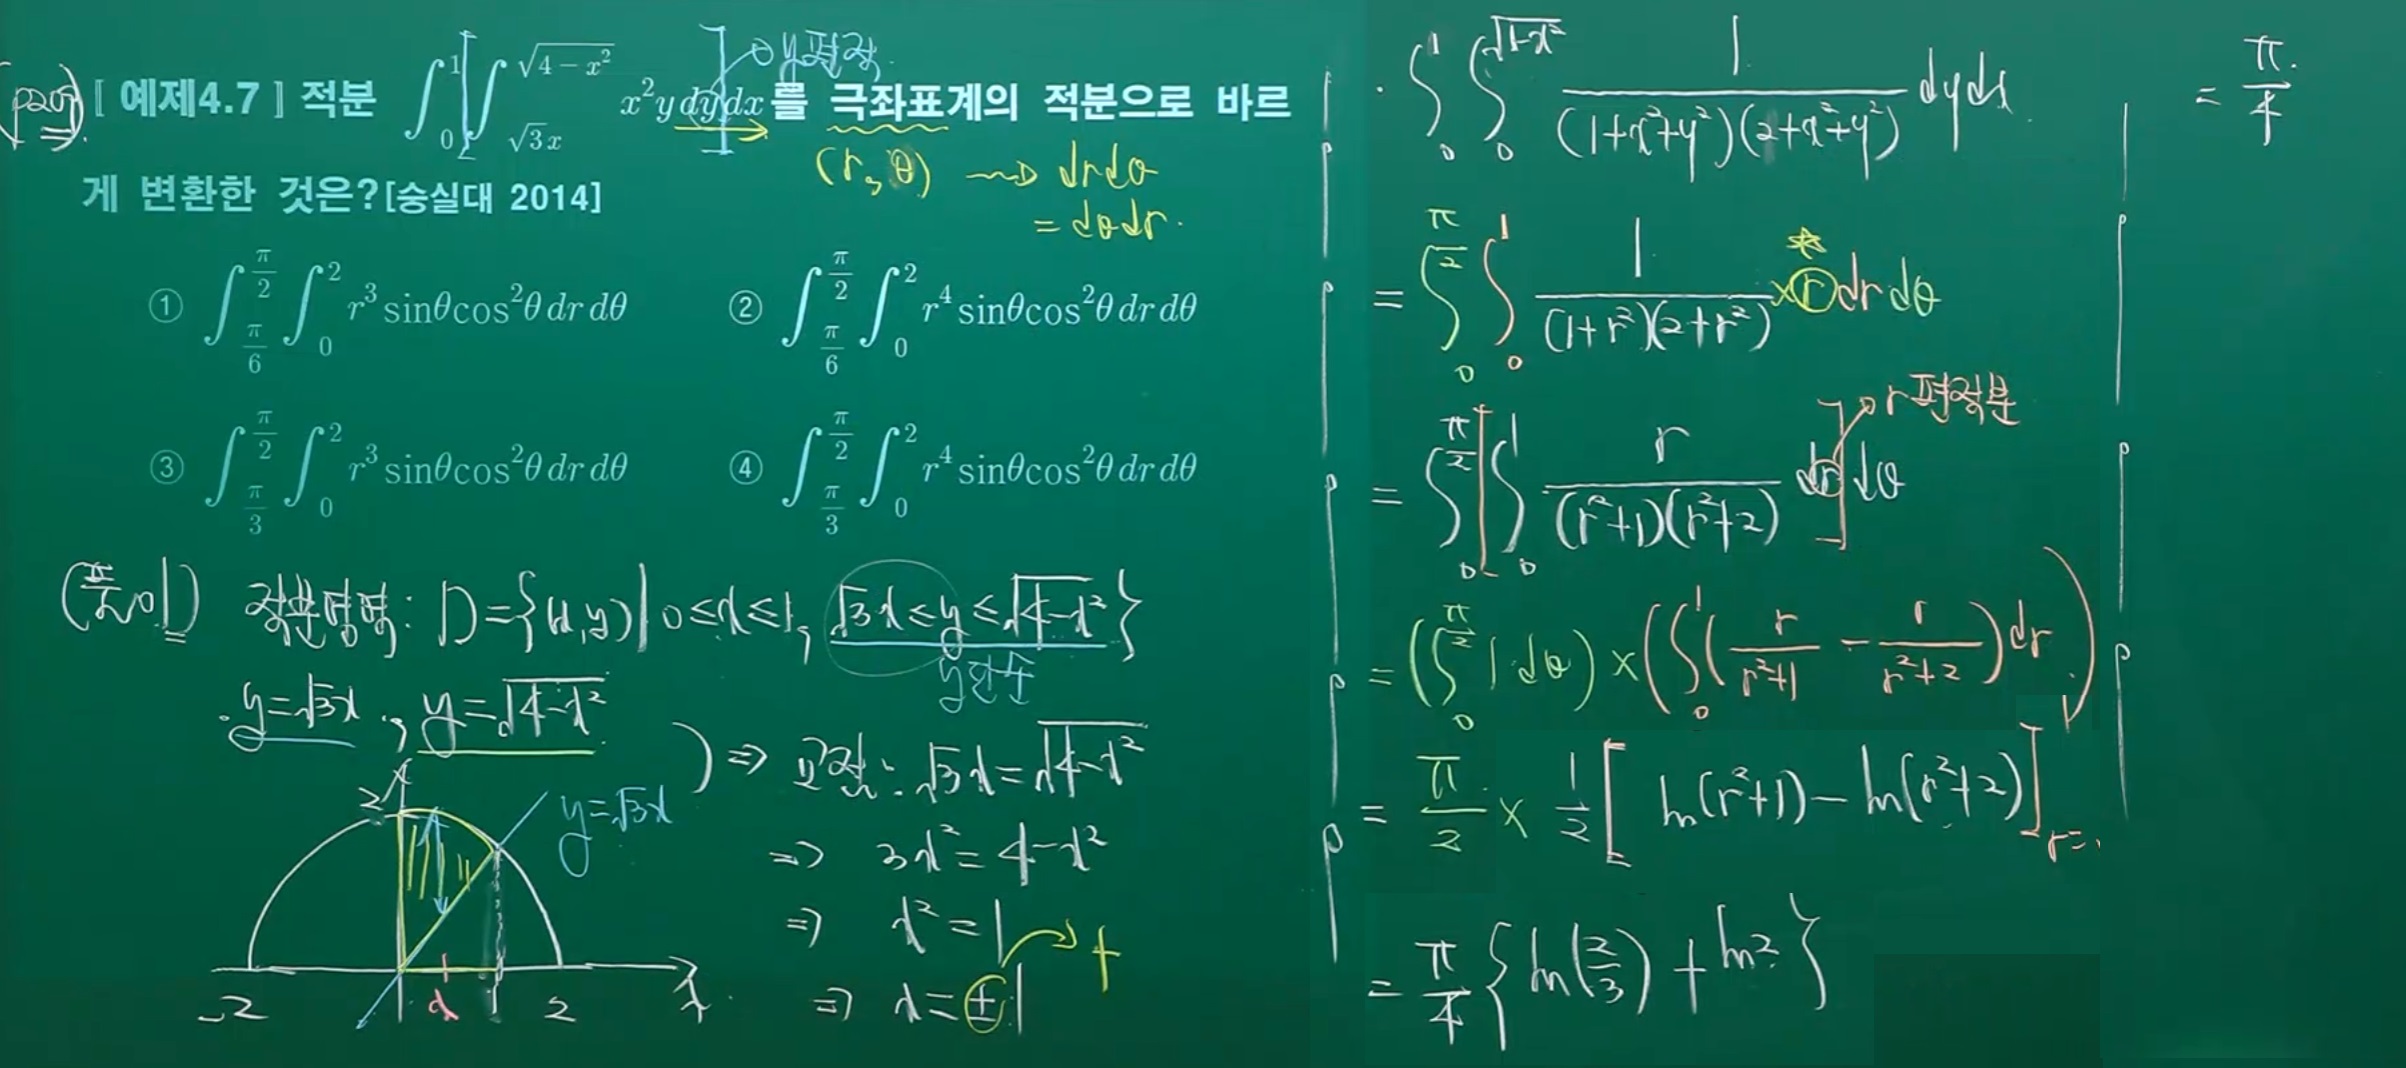 (p209) [ 예제4.7 ] 적분 ∫_0^1 [∫_{√3x}^{√(4-x²)} x²y dy] dx 를 극좌표계의 적분으로 바르
y편적
(r, θ) ⇝ drdθ
= dθdr.
게 변환한 것은?[숭실대 2014]
① ∫_{π/6}^{π/2} ∫_0^2 r³ sinθcos²θ dr dθ
② ∫_{π/6}^{π/2} ∫_0^2 r⁴ sinθcos²θ dr dθ
③ ∫_{π/3}^{π/2} ∫_0^2 r³ sinθcos²θ dr dθ
④ ∫_{π/3}^{π/2} ∫_0^2 r⁴ sinθcos²θ dr dθ
(풀이) 적분영역: D={(x,y)| 0≤x≤1, √3x≤y≤√(4-x²)}
y=√3x , y=√(4-x²)
) ⇒ 교점: √3x=√(4-x²)
⇒ 3x²=4-x²
⇒ x²=1
⇒ x=±1 +
2
y=√3x
-2 x 1 2 x
· ∫_0^1 ∫_0^{√(1-x²)} 1/((1+x²+y²)(2+x²+y²)) dydx
= ∫_0^{π/2} ∫_0^1 1/((1+r²)(2+r²)) × r dr dθ
= ∫_0^{π/2} [∫_0^1 r/((r²+1)(r²+2)) dr] dθ
r편적분
= (∫_0^{π/2} 1 dθ) × (∫_0^1 (r/(r²+1) - r/(r²+2)) dr)
= π/2 × 1/2 [ ln(r²+1) - ln(r²+2) ]_{r=
= π/4 { ln(2/3) + ln2 }
= π/4